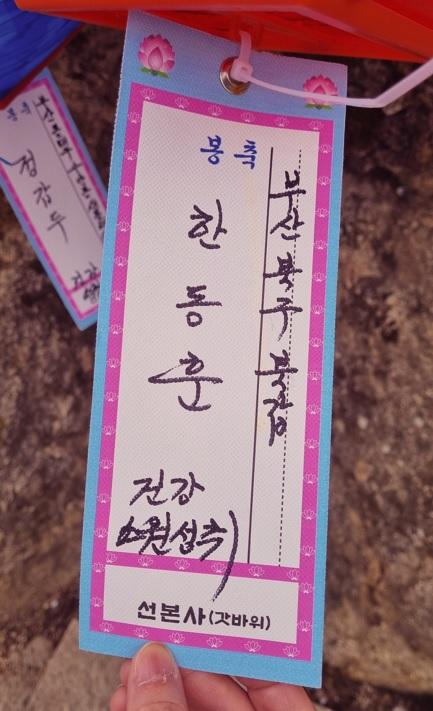 봉축
부산 북구 북갑
한동훈
건강
소원성취
선본사(갓바위)
봉축
정갑두
건강